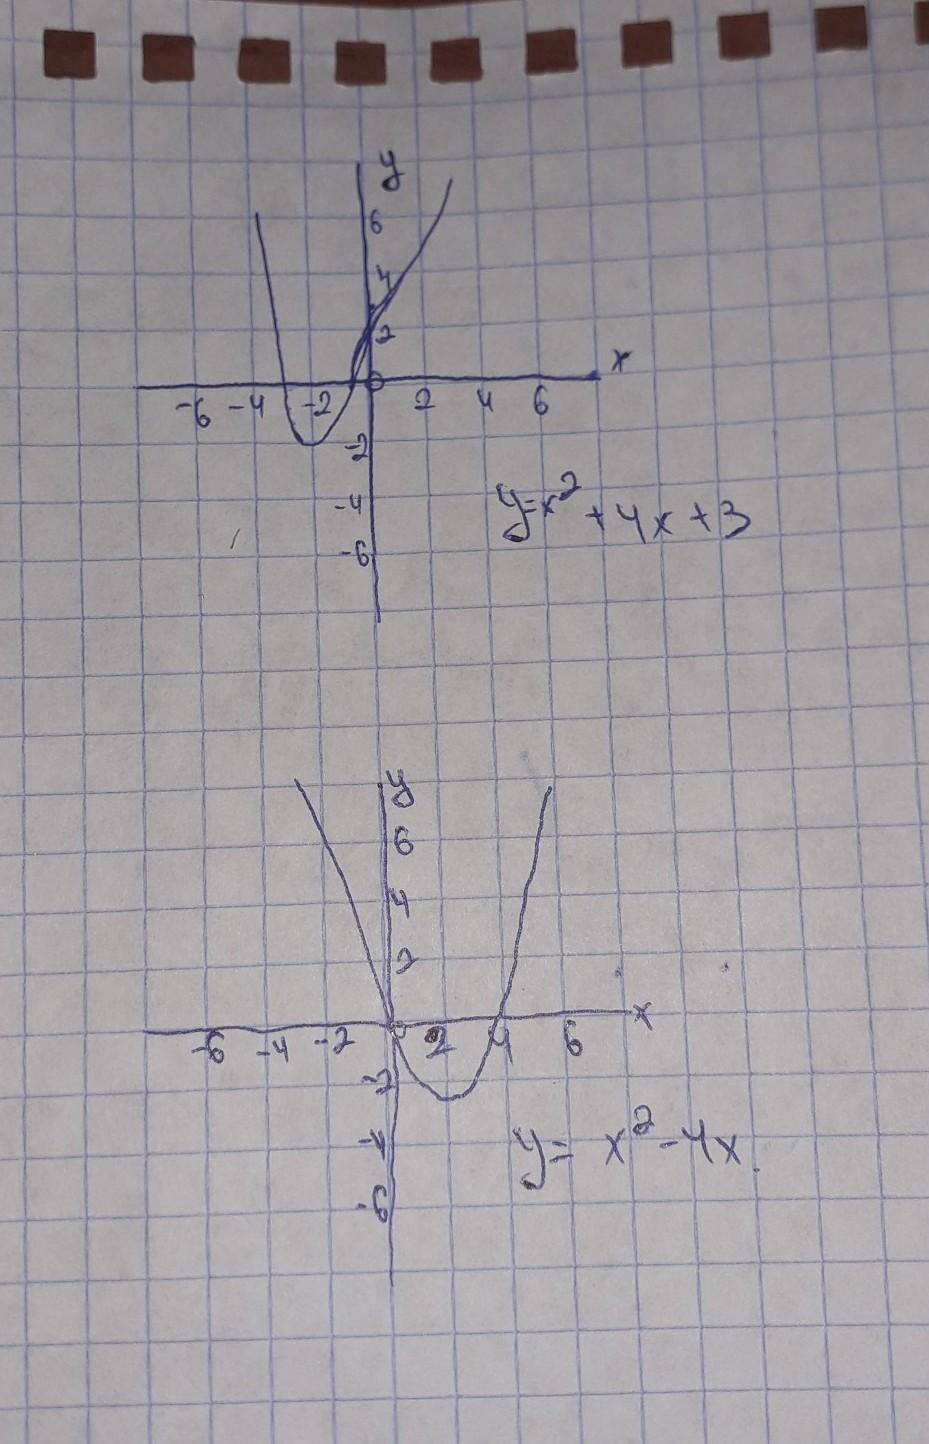 y
6
4
2
x
0
-6 -4 -2 2 4 6
-2
-4
-6
y=x²+4x+3
y
6
4
2
x
0
-6 -4 -2 2 4 6
-2
-4
-6
y= x²-4x